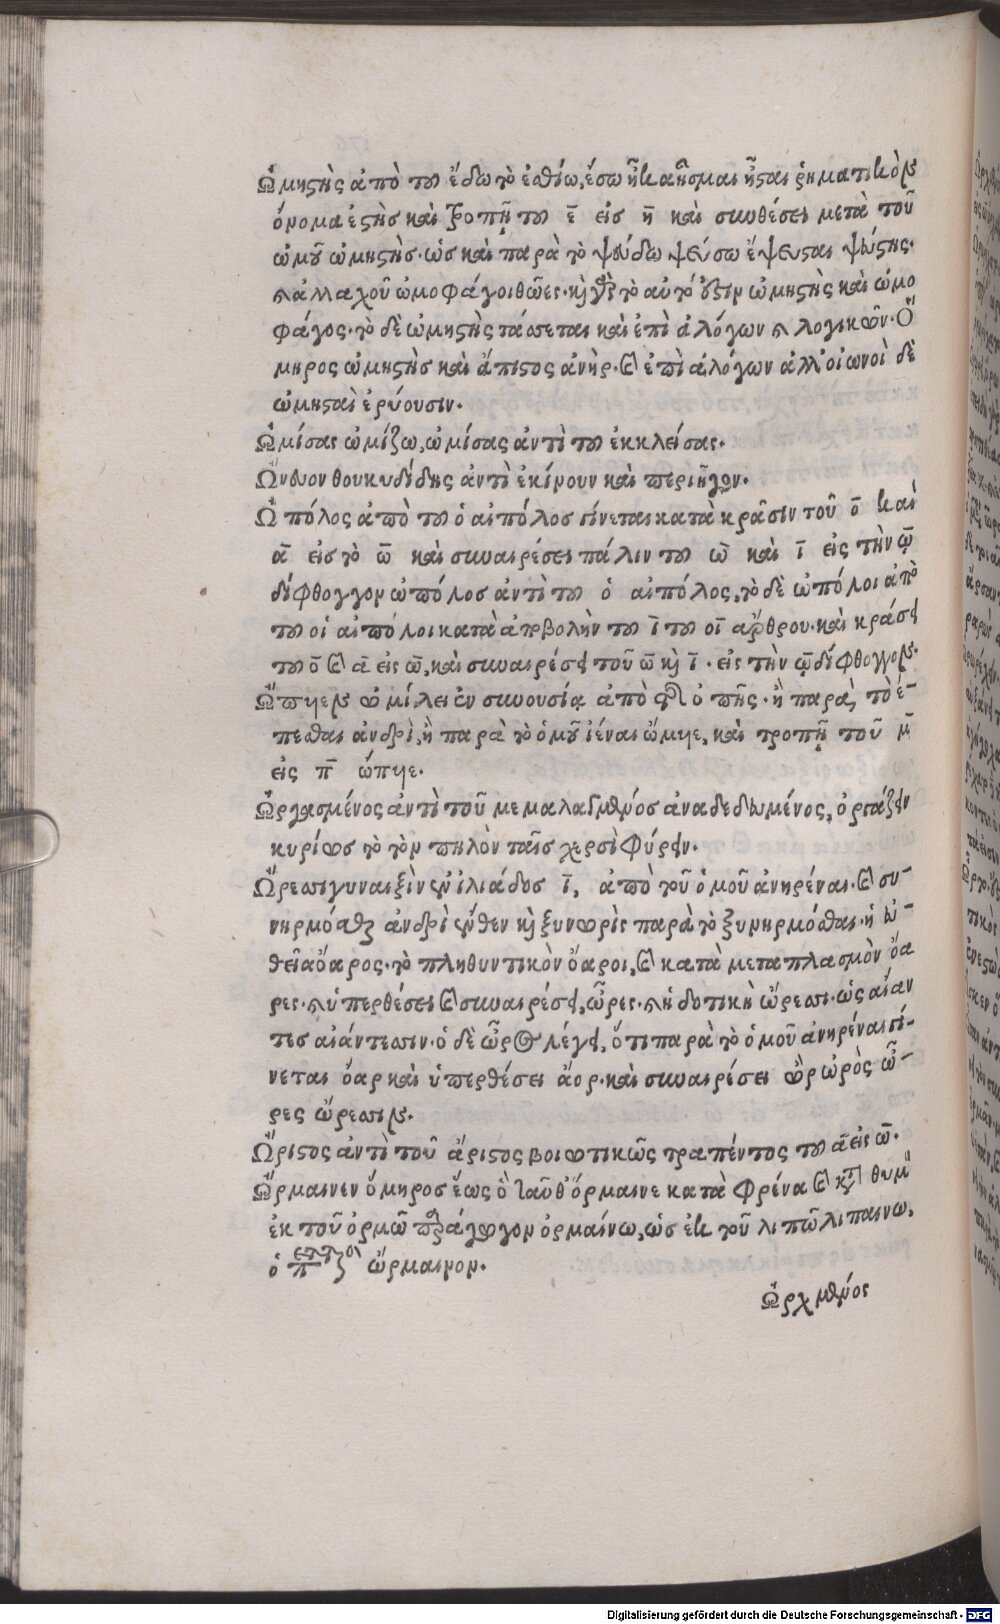 Ὠμηστὴς ἀπὸ τοῦ ἔδω τὸ ἐσθίω, ἔσω ἦκα ἦσμαι ἦσται ῥηματικὸν
ὄνομα ἐστὴς καὶ τροπῇ τοῦ ε̄ εἰς η̄ καὶ συνθέσει μετὰ τοῦ
ὠμοῦ ὠμηστὴς. ὡς καὶ παρὰ τὸ ψεύδω ψεύσω ἔψευσται ψεύστης.
ἀλλαχοῦ ὠμοφάγοι θῶες. καὶ τὸ αὐτό ἐστιν ὠμηστὴς καὶ ὠμο
φάγος. τὸ δὲ ὠμηστὴς τάσσεται καὶ ἐπὶ ἀλόγων λογικῶν. Ὅ
μηρος ὠμηστὴς καὶ ἄπιστος ἀνὴρ. καὶ ἐπὶ ἀλόγων ἀλλ' οἰωνοὶ δὲ
ὠμησταὶ ἐρύουσιν.
Ὠμίσας ὠμίζω, ὠμίσας ἀντὶ τοῦ ἐκκλείσας.
Ὤνευον θουκυδίδης ἀντὶ ἐκίνουν καὶ περιῆγον.
Ὠ πόλος ἀπὸ τοῦ ὁ αἰπόλος γίνεται κατὰ κρᾶσιν τοῦ ο̄ καὶ
ᾱ εἰς τὸ ω̄ καὶ συναιρέσει πάλιν τοῦ ω̄ καὶ ῑ εἰς τὴν ῳ
δίφθογγον ὠπόλος ἀντὶ τοῦ ὁ αἰπόλος, τὸ δὲ ὠπόλοι ἀπὸ
τοῦ οἱ αἰπόλοι κατὰ ἀποβολὴν τοῦ ῑ τοῦ οῑ ἄρθρου. καὶ κράσει
τοῦ ο̄ καὶ ᾱ εἰς ω̄, καὶ συναιρέσει τοῦ ω̄ καὶ ῑ. εἰς τὴν ῳ δίφθογγον.
Ὤπυεν ὡμίλει ἐν συνουσίᾳ ἀπὸ τῆς ὀπῆς. ἢ παρὰ, τὸ ἕ-
πεσθαι ἀνδρὶ, ἢ παρὰ τὸ ὁμοῦ ἰέναι ὤμυε, καὶ τροπῇ τοῦ μ̄
εἰς π̄ ὤπυε.
Ὠργασμένος ἀντὶ τοῦ μεμαλαγμένος ἀναδεδευμένος, ὀργάζειν
κυρίως τὸ τὸν πηλὸν ταῖς χερσὶ φύρειν.
Ὤρεσσι γυναιξὶν ἐν ἰλιάδος ῑ, ἀπὸ τοῦ ὁμοῦ ἀνηρέναι. καὶ συ-
νηρμόσθαι ἀνδρὶ ὅθεν καὶ ξυνωρὶς παρὰ τὸ ξυνηρμόσθαι. ἡ εὐ-
θεῖα ὄαρος. τὸ πληθυντικὸν ὄαροι, καὶ κατὰ μεταπλασμὸν ὄα
ρες. ὑπερθέσει καὶ συναιρέσει, ὦρες. ἡ δοτικὴ ὤρεσσι. ὡς αἴαν
τες αἰάντεσσιν. ὁ δὲ ὦρος λέγει, ὅτι παρὰ τὸ ὁμοῦ ἀνηρέναι γί-
νεται ὄαρ καὶ ὑπερθέσει ἄορ. καὶ συναιρέσει ὢρ ὠρὸς ὦ-
ρες ὤρεσσιν.
Ὤριστος ἀντὶ τοῦ ἄριστος βοιωτικῶς τραπέντος τοῦ ᾱ εἰς ω̄.
Ὤρμαινεν ὅμηρος ἕως ὃ ταῦθ' ὅρμαινε κατὰ φρένα καὶ κατὰ θυμὸν
ἐκ τοῦ ὁρμῶ παράγωγον ὁρμαίνω, ὡς ἐκ τοῦ λιπῶ λιπαινω,
ὁ ὥρμαινον.
Ὠρχμένος